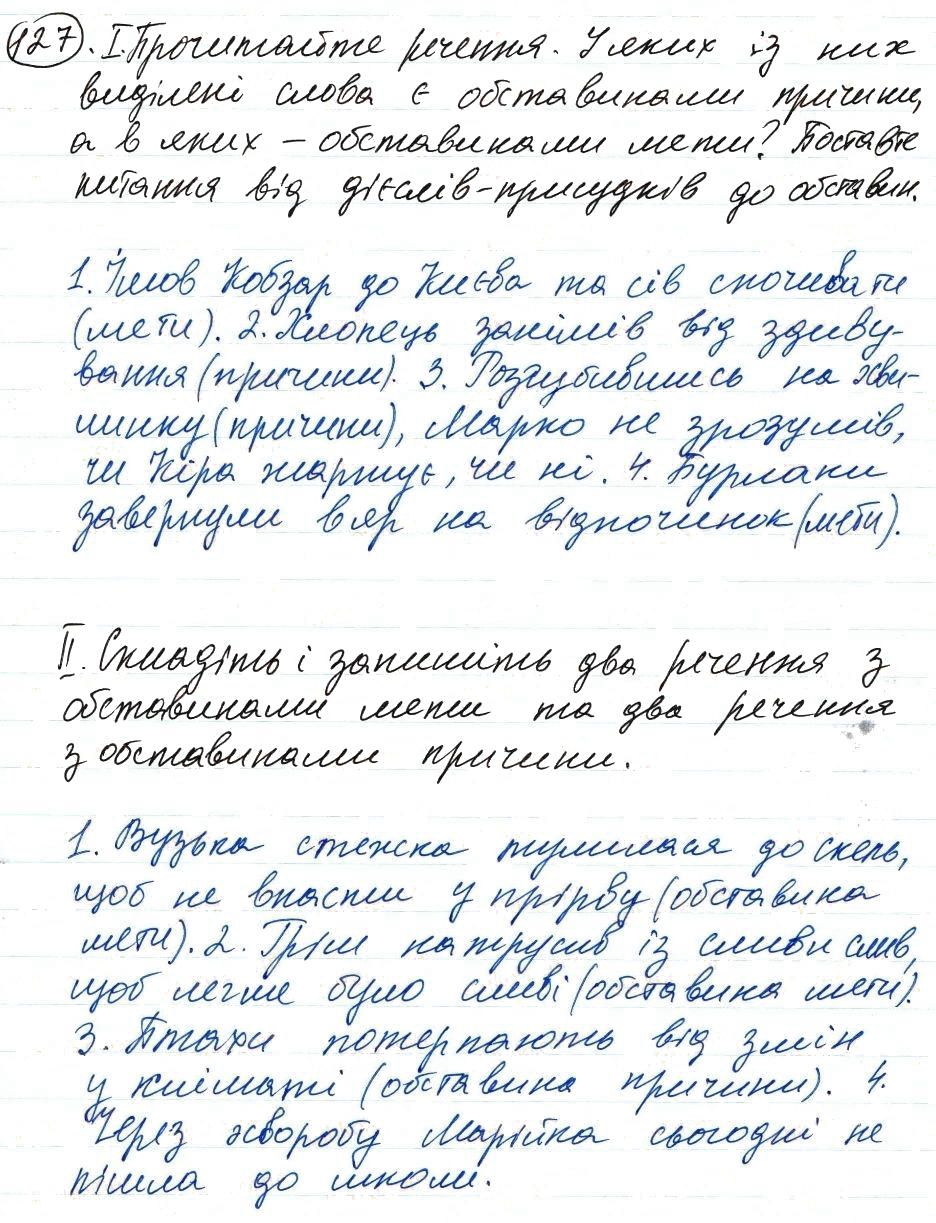 127. I. Прочитайте речення. У яких із них
виділені слова є обставинами причини,
а в яких – обставинами мети? Поставте
питання від дієслів-присудків до обставин.
1. Ішов Кобзар до Києва та сів спочивати
(мети). 2. Хлопець занімів від здиву-
вання (причини). 3. Розгубившись на хви-
линку (причини), Марко не зрозумів,
чи Кіра жартує, чи ні. 4. Бурлаки
завернули в яр на відпочинок (мети).
II. Складіть і запишіть два речення з
обставинами мети та два речення
з обставинами причини.
1. Вузька стежка тулилася до скель,
щоб не впасти у прірву (обставина
мети). 2. Грім натрусив із сливи слив,
щоб легше було сливі (обставина мети).
3. Птахи потерпають від змін
у кліматі (обставина причини). 4.
Через хворобу Марійка сьогодні не
пішла до школи.